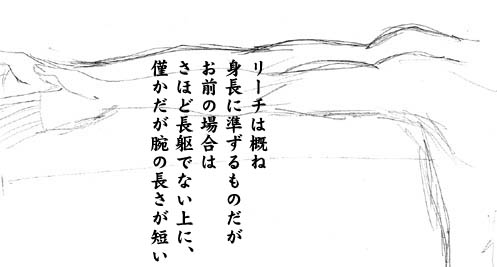 リーチは概ね
身長に準ずるものだが
お前の場合は
さほど長躯でない上に、
僅かだが腕の長さが短い